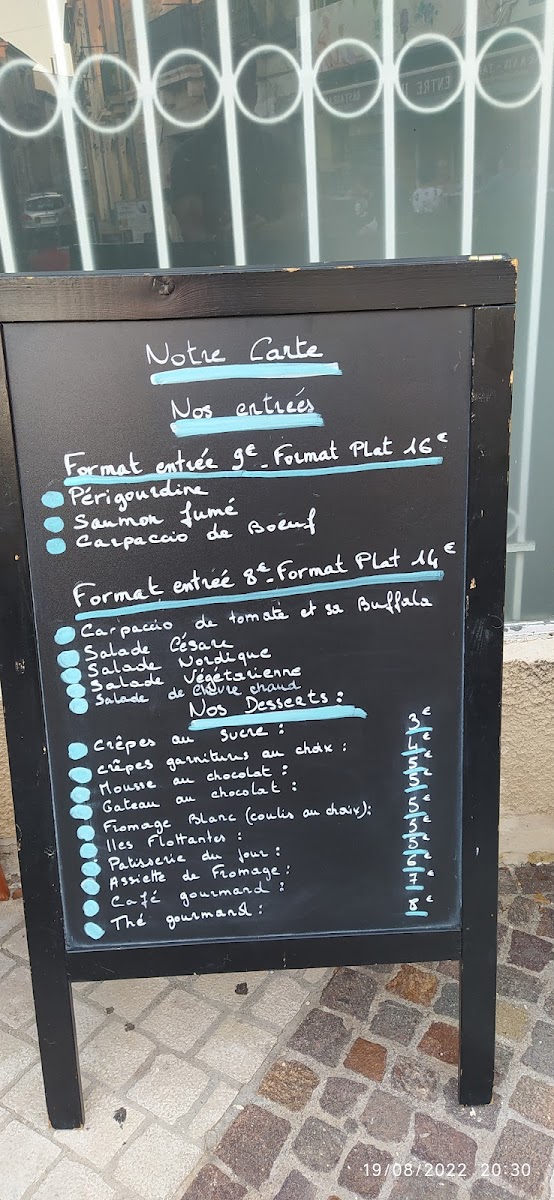 Notre Carte
Nos entrées
Format entrée 9€ - Format Plat 16€
Périgourdine
Saumon fumé
Carpaccio de Boeuf
Format entrée 8€ - Format Plat 14€
Carpaccio de tomate et sa Buffala
Salade César
Salade Nordique
Salade Végétarienne
Salade de chèvre chaud
Nos Desserts :
Crêpes au sucre : 3€
crêpes garnitures au choix : 4€
Mousse au chocolat : 5€
Gateau au chocolat : 5€
Fromage Blanc (coulis au choix) : 5€
Iles Flottantes : 5€
Patisserie du jour : 5€
Assiette de Fromage : 6€
Café gourmand : 7€
Thé gourmand : 8€
19/08/2022 20:30